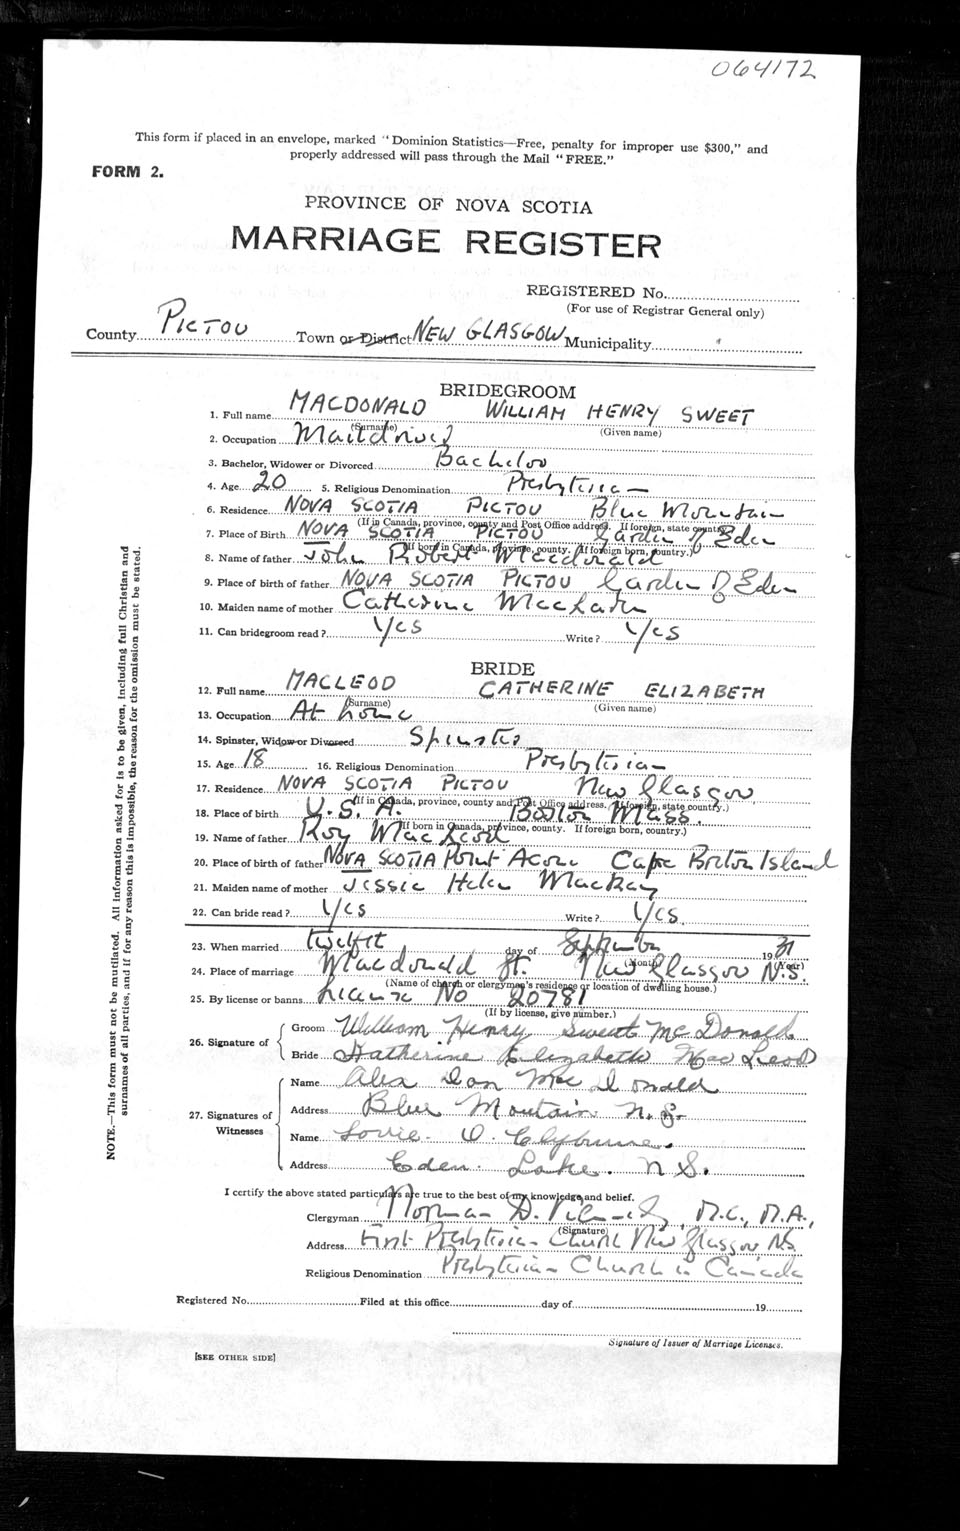 064172
This form if placed in an envelope, marked "Dominion Statistics—Free, penalty for improper use $300," and
properly addressed will pass through the Mail "FREE."
FORM 2.
PROVINCE OF NOVA SCOTIA
MARRIAGE REGISTER
REGISTERED No.
(For use of Registrar General only)
County PICTOU Town or District NEW GLASGOW Municipality
BRIDEGROOM
1. Full name MACDONALD WILLIAM HENRY SWEET
(Surname) (Given name)
2. Occupation Maildriver
3. Bachelor, Widower or Divorced Bachelor
4. Age 20 5. Religious Denomination Presbyterian
6. Residence NOVA SCOTIA PICTOU Blue Mountain
(If in Canada, province, county and Post Office address. If foreign, state country.)
7. Place of Birth NOVA SCOTIA PICTOU Garden of Eden
(If born in Canada, province, county. If foreign born, country.)
8. Name of father John Robert Macdonald
9. Place of birth of father NOVA SCOTIA PICTOU Garden of Eden
10. Maiden name of mother Catherine
11. Can bridegroom read? Yes Write? Yes
BRIDE
12. Full name MACLEOD CATHERINE ELIZABETH
(Surname) (Given name)
13. Occupation At home
14. Spinster, Widow or Divorced Spinster
15. Age 18 16. Religious Denomination Presbyterian
17. Residence NOVA SCOTIA PICTOU New Glasgow
(If in Canada, province, county and Post Office address. If foreign, state country.)
18. Place of birth U.S.A. Boston Mass.
(If born in Canada, province, county. If foreign born, country.)
19. Name of father Roy MacLeod
20. Place of birth of father NOVA SCOTIA Point Aconi Cape Breton Island
21. Maiden name of mother Jessie Helen MacKay
22. Can bride read? Yes Write? Yes.
23. When married twelfth day of September 1931
(Month) (Year)
24. Place of marriage Macdonald St. New Glasgow N.S.
(Name of church or clergymen's residence or location of dwelling house.)
25. By license or banns License No 20781
(If by license, give number.)
26. Signature of
Groom William Henry Sweet McDonald
Bride Katherine Elizabeth MacLeod
27. Signatures of Witnesses
Name Alex Ian MacDonald
Address Blue Mountain N.S.
Name O. Clyburne.
Address Eden. Lake. N S.
I certify the above stated particulars are true to the best of my knowledge and belief.
Clergyman Norman D. , M.C., M.A.,
(Signature)
Address First Presbyterian Church New Glasgow N.S.
Religious Denomination Presbyterian Church in Canada
Registered No. Filed at this office day of 19
Signature of Issuer of Marriage Licenses.
[SEE OTHER SIDE]
NOTE.—This form must not be mutilated. All information asked for is to be given, including full Christian and
surnames of all parties, and if for any reason this is impossible, the reason for the omission must be stated.